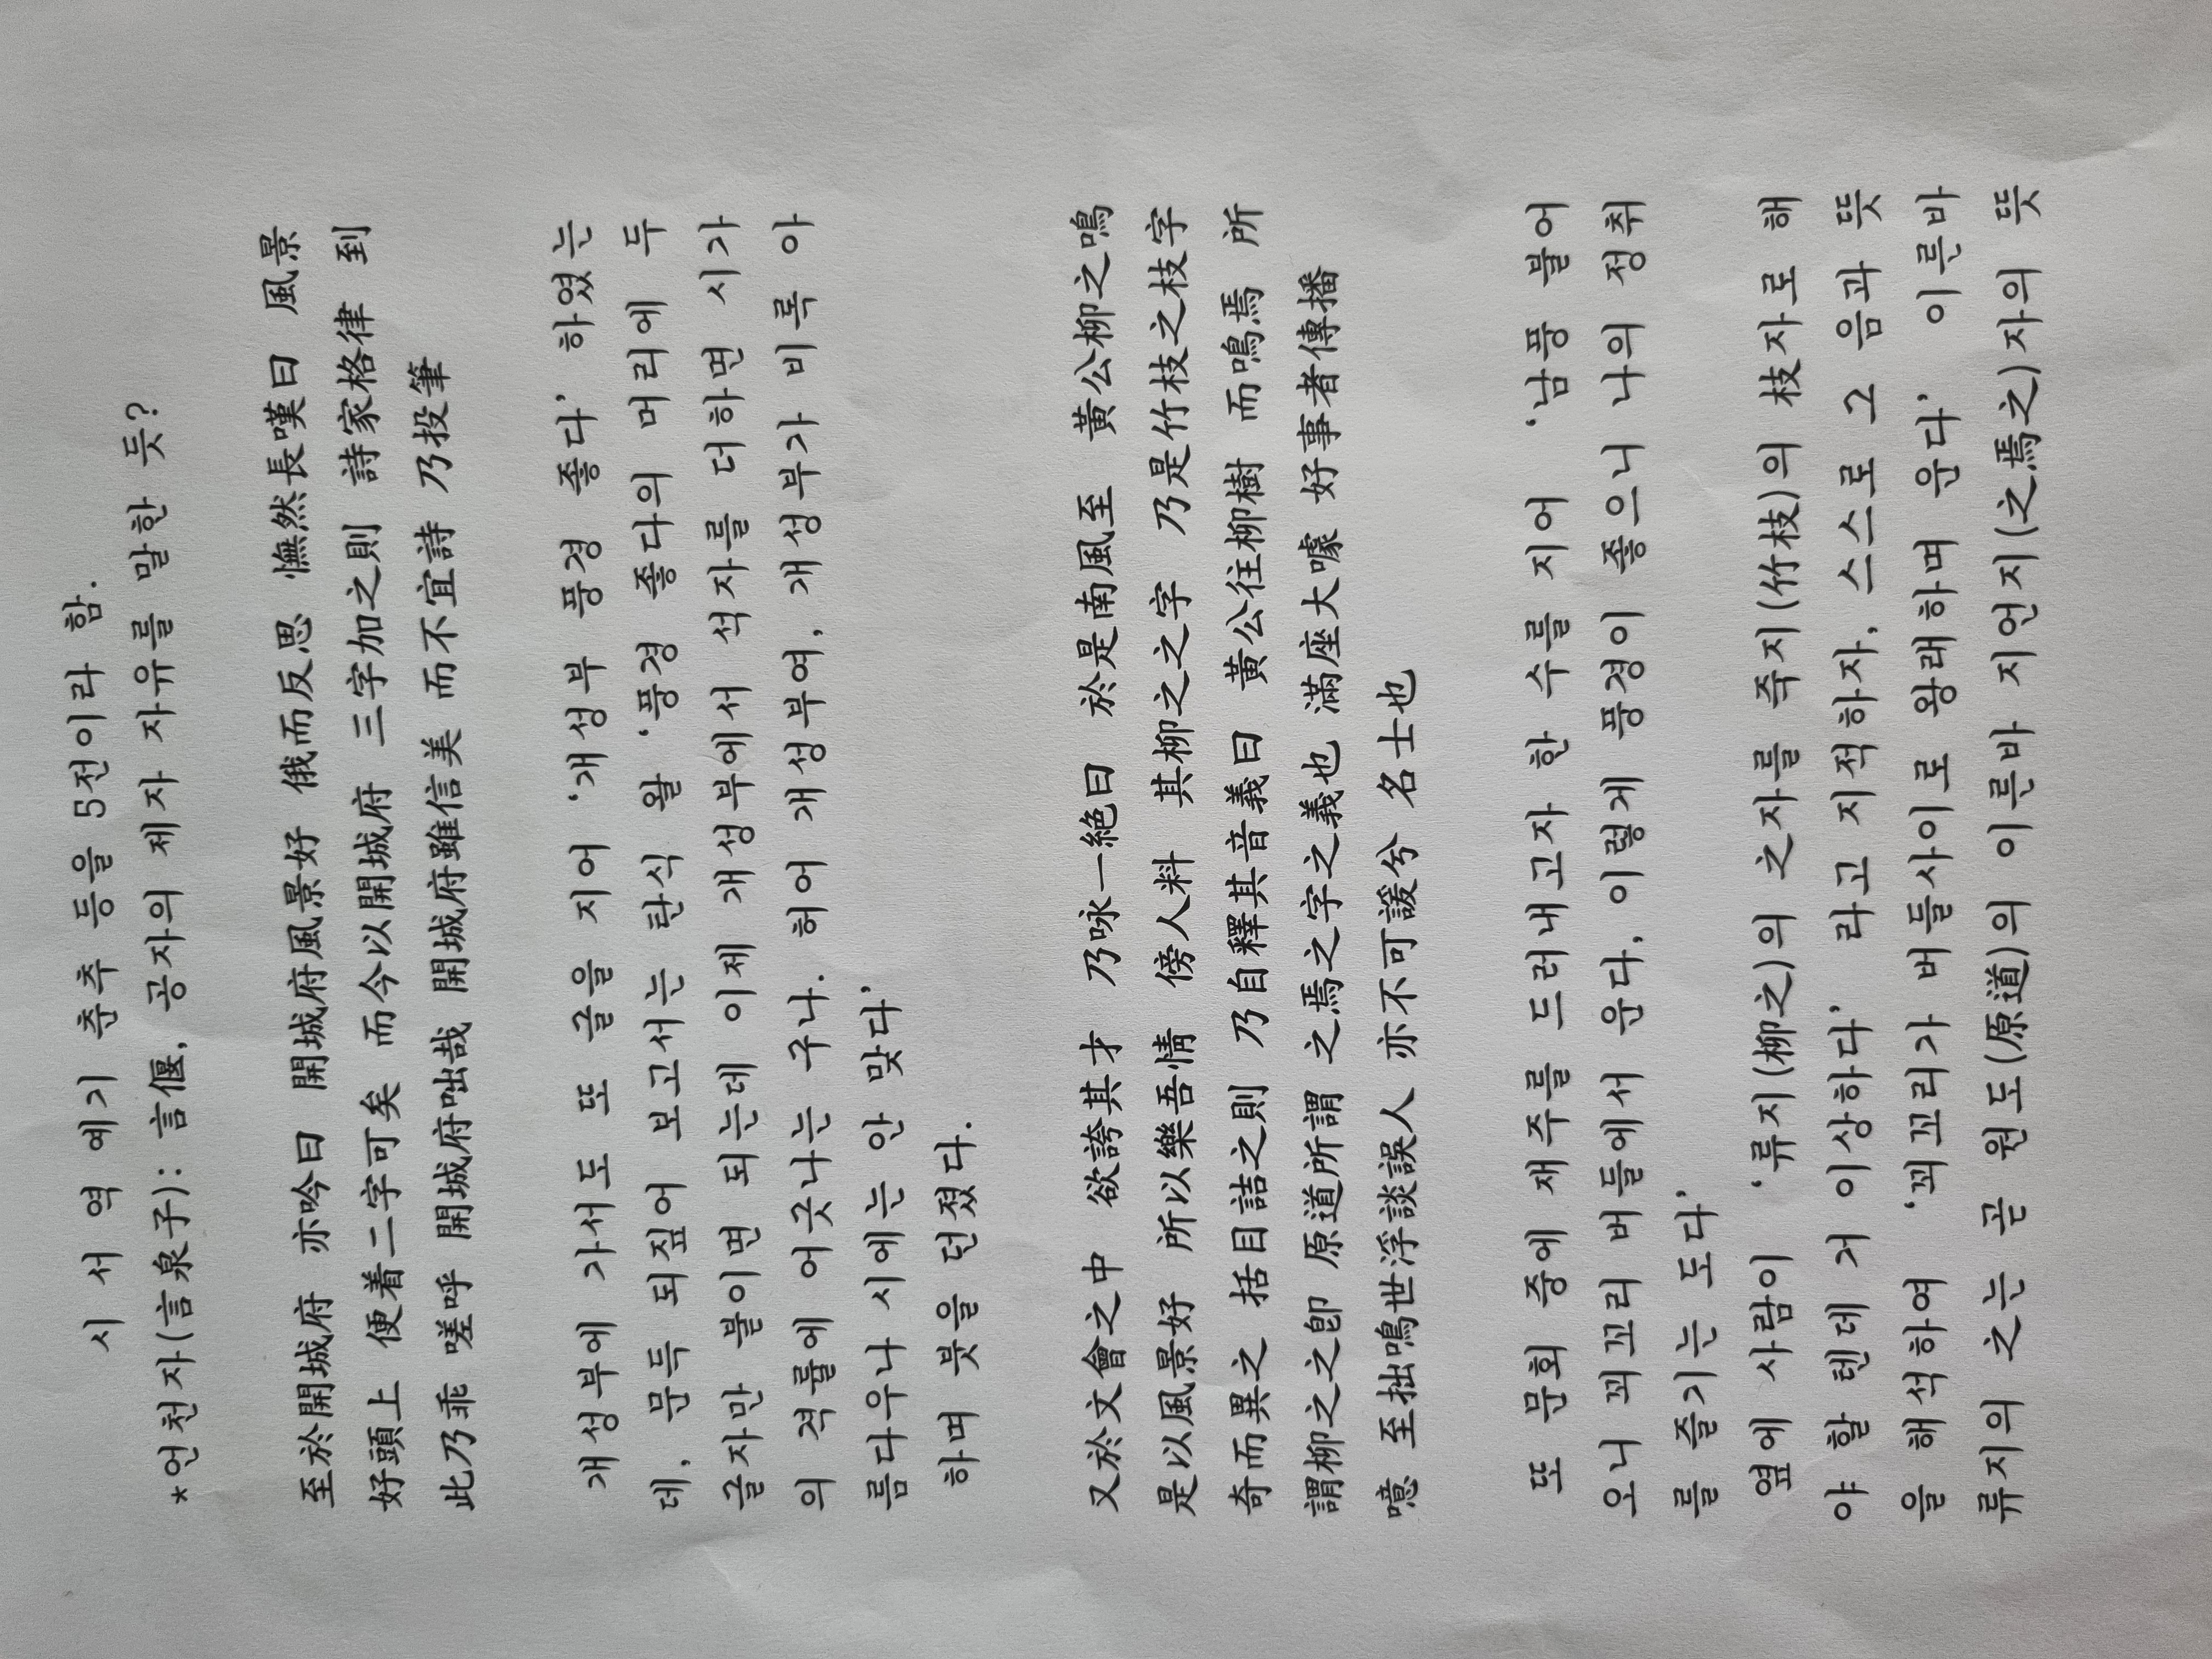 시 서 역 예기 춘추 등을 5전이라 함.
*언천자(言泉子): 言偃, 공자의 제자 자유를 말한 듯?
至於開城府 亦吟曰 開城府風景好 俄而反思 憮然長嘆曰 風景
好頭上 便着二字可矣 而今以開城府 三字加之則 詩家格律 到
此乃乖 嗟呼 開城府咄哉 開城府雖信美 而不宜詩 乃投筆
개성부에 가서도 또 글을 지어 '개성부 풍경 좋다' 하였는
데, 문득 되짚어 보고서는 탄식 왈 '풍경 좋다의 머리에 두
글자만 붙이면 되는데 이제 개성부에서 석자를 더하면 시가
의 격률에 어긋나는 구나. 허어 개성부여, 개성부가 비록 아
름다우나 시에는 안 맞다'
하며 붓을 던졌다.
又於文會之中 欲誇其才 乃咏一絶曰 於是南風至 黃公柳之鳴
是以風景好 所以樂吾情 傍人料 其柳之之字 乃是竹枝之枝字
奇而異之 括目詰之則 乃自釋其音義曰 黃公往柳樹 而鳴焉 所
謂柳之之卽 原道所謂 之焉之字之義也 滿座大噱 好事者傳播
噫 至拙鳴世浮談誤人 亦不可諼兮 名士也
또 문회 중에 재주를 드러내고자 한 수를 지어 '남풍 불어
오니 꾀꼬리 버들에서 운다, 이렇게 풍경이 좋으니 나의 정취
를 즐기는 도다'
옆에 사람이 '류지(柳之)의 之자를 죽지(竹枝)의 枝자로 해
야 할 텐데 거 이상하다' 라고 지적하자, 스스로 그 음과 뜻
을 해석하여 '꾀꼬리가 버들사이로 왕래하며 운다' 이른바
류지의 之는 곧 원도(原道)의 이른바 지언지(之焉之)자의 뜻